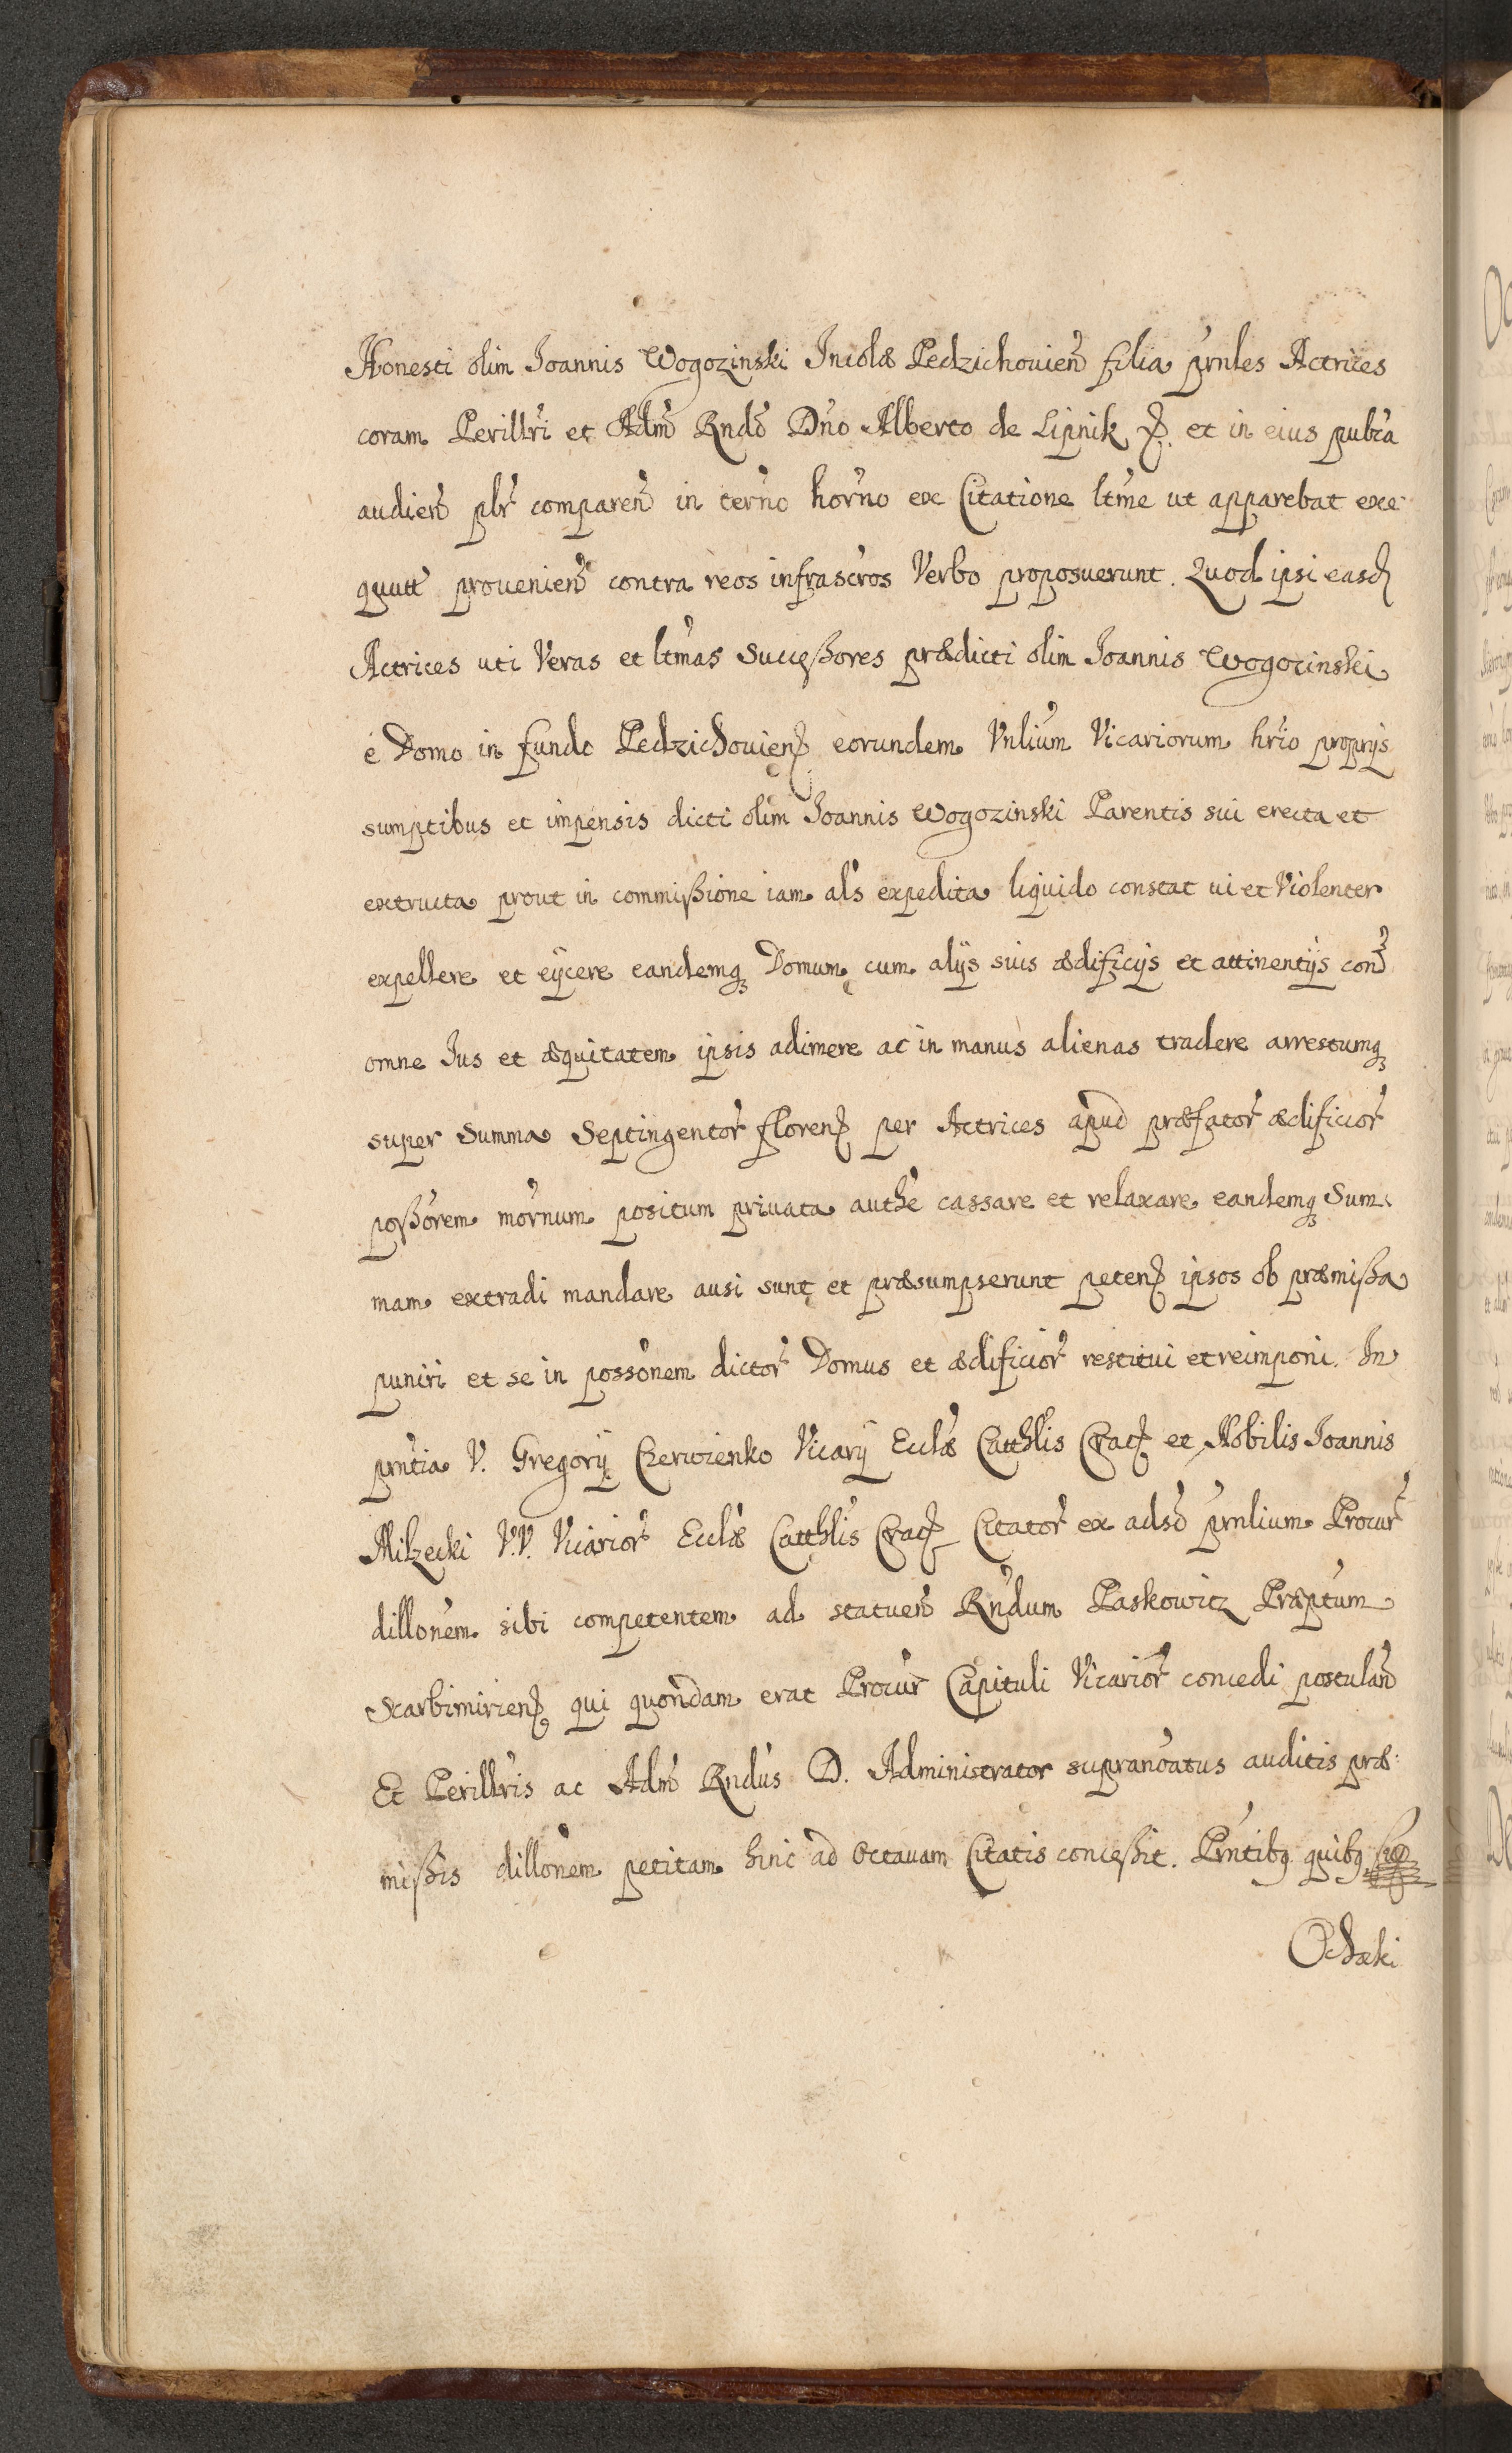 Honesti olim Joannis Wogozinski Incolæ Pedzichouień filia pr̃ntes Actrices
coram Perillri et Adm̃ Rndo Dño Alberto de Lipnik et in eius pub̃ca
audień plr̃ compareń in ter̃no hor̃no ex Citatione ltm̃e ut apparebat exe-
quutt prouenień contra reos infrascr̃os Verbo proposuerunt. Quod ipsi easd
Actrices uti Veras et ltm̃as Successores prædicti olim Joannis Wogozinski
e Domo in fundo Pedzichouień eorundem Vnlium Vicariorum hr̃io proprÿs
sumptibus et impensis dicti olim Joannis Wogozinski Parentis sui erecta et
extructa prout in commissione iam als expedita liquido constat ui et Violenter
expellere et eÿcere eandemq Domum cum alÿs suis ædificÿs et attinentÿs con
omne Ius et æquitatem ipsis adimere ac in manus alienas tradere arrestumq
super Summa Septingentor̃ floreń per Actrices apud præfator̃ ædificior̃
possorem mor̃num positum priuata authe cassare et relaxare eandemq Sum-
mam extradi mandare ausi sunt et præsumpserunt peteń ipsos ob præmissa
puniri et se in possonem dictor̃ Domus et ædificior̃ restitui et reimponi. In
prñtia V. Gregorÿ Czerwienko Vicarÿ Ecclæ Catthlis Crac et Nobilis Joannis
Milzecki V.V. Vicarior̃ Ecclæ Catthlis Crac Citator̃ ex adso prñlium Procur̃
dillonem sibi competentem ad statueń Rndum Paskowitz Præptum
Scarbimirień qui quondam erat Procur̃ Capituli Vicarior̃ concedi postulań
Et Perillris ac Adm̃ Rndus D. Administrator supranoatus auditis præ-
missis dillonem petitam hinc ad Octauam Citatis concessit. Prñtibq quibq
Ochæki